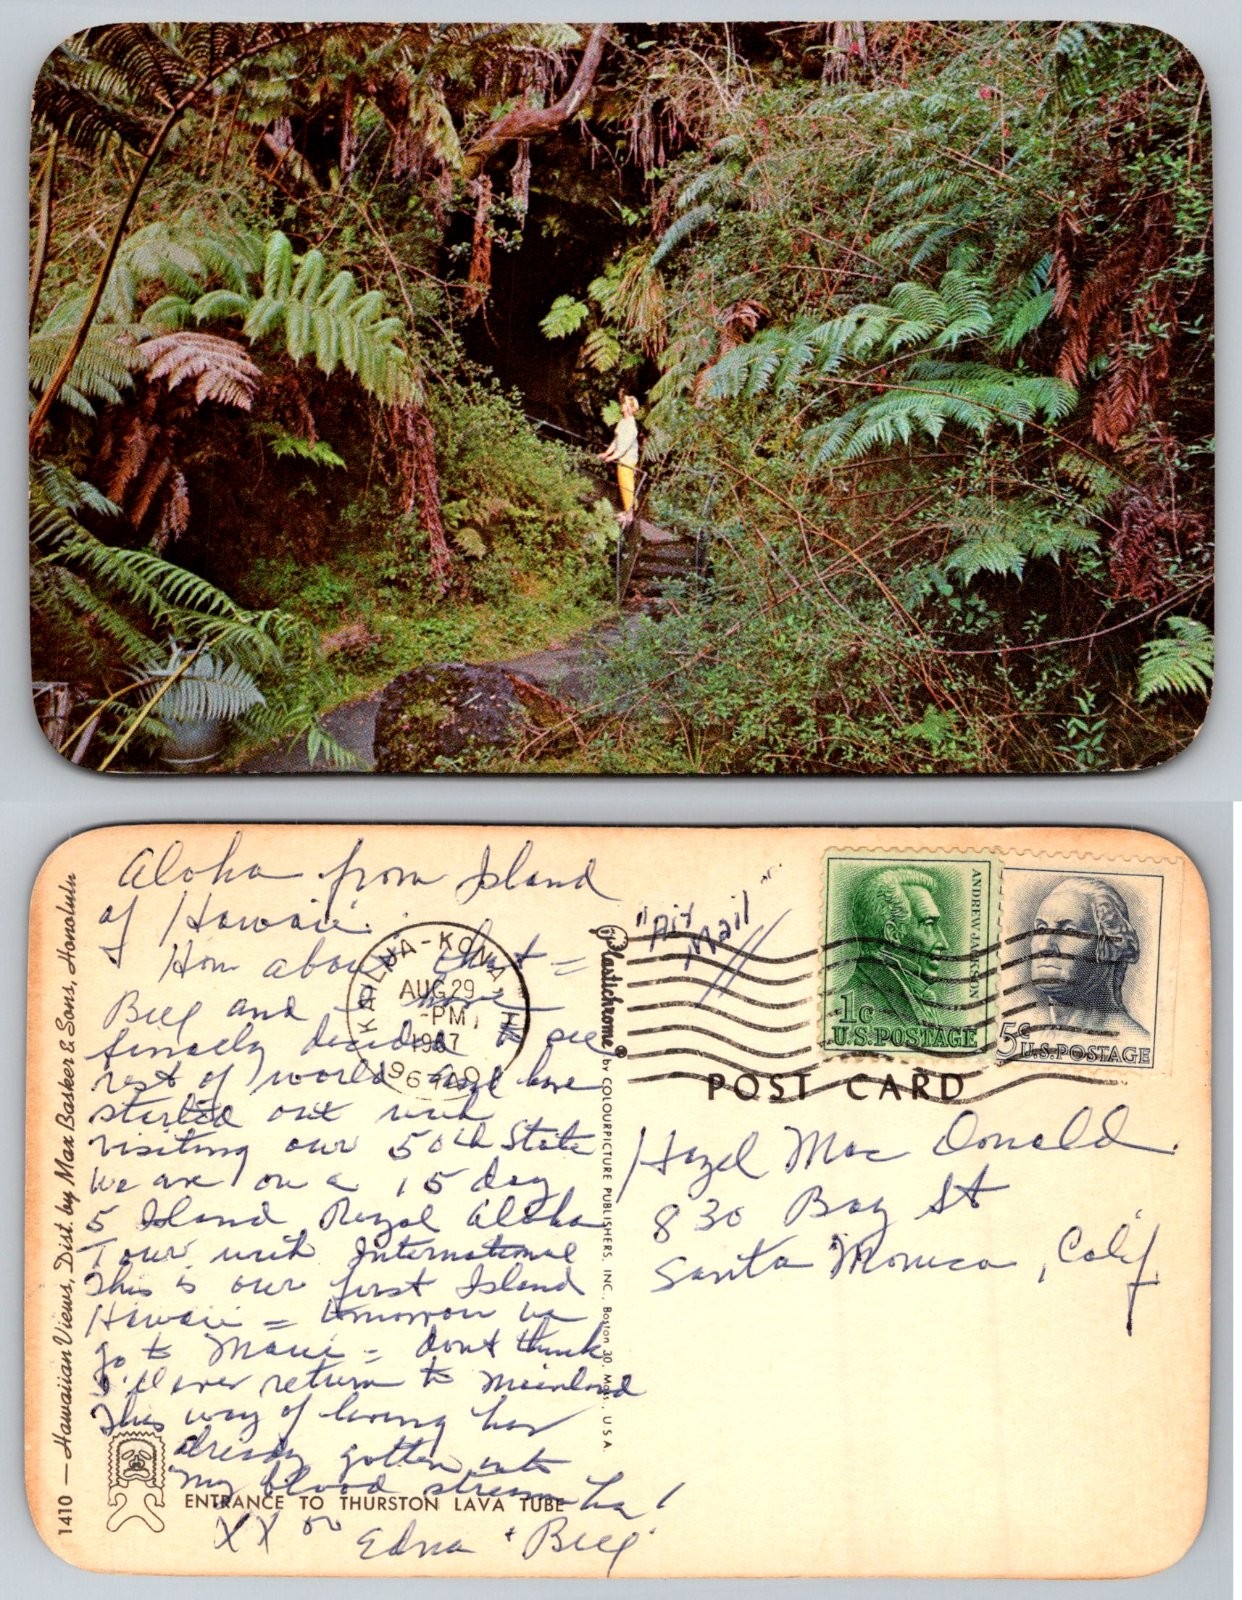 Aloha from Island
of Hawaii.
How about that =
Bill and I have
finally decided to see
rest of world and have
started out with
visiting our 50th State
We are on a 15 day
5 Island Royal Aloha
Tour with International
This is our first Island
Hawaii = tomorrow we
go to Maui = dont think
I'll ever return to Mainland
This way of living has
already gotten into
my blood stream ha!
XX Edna + Bill
ENTRANCE TO THURSTON LAVA TUBE
1410 — Hawaiian Views, Dist. by Max Basker & Sons, Honolulu
KAILUA-KONA, H
AUG 29
-PM
1967
96740
Plastichrome® by COLOURPICTURE PUBLISHERS, INC., Boston 30, Mass., U.S.A.
"Air Mail"
ANDREW JACKSON
1c
U.S. POSTAGE
5c
U.S. POSTAGE
POST CARD
Hazel Mac Donald.
830 Bay St
Santa Monica, Calif.